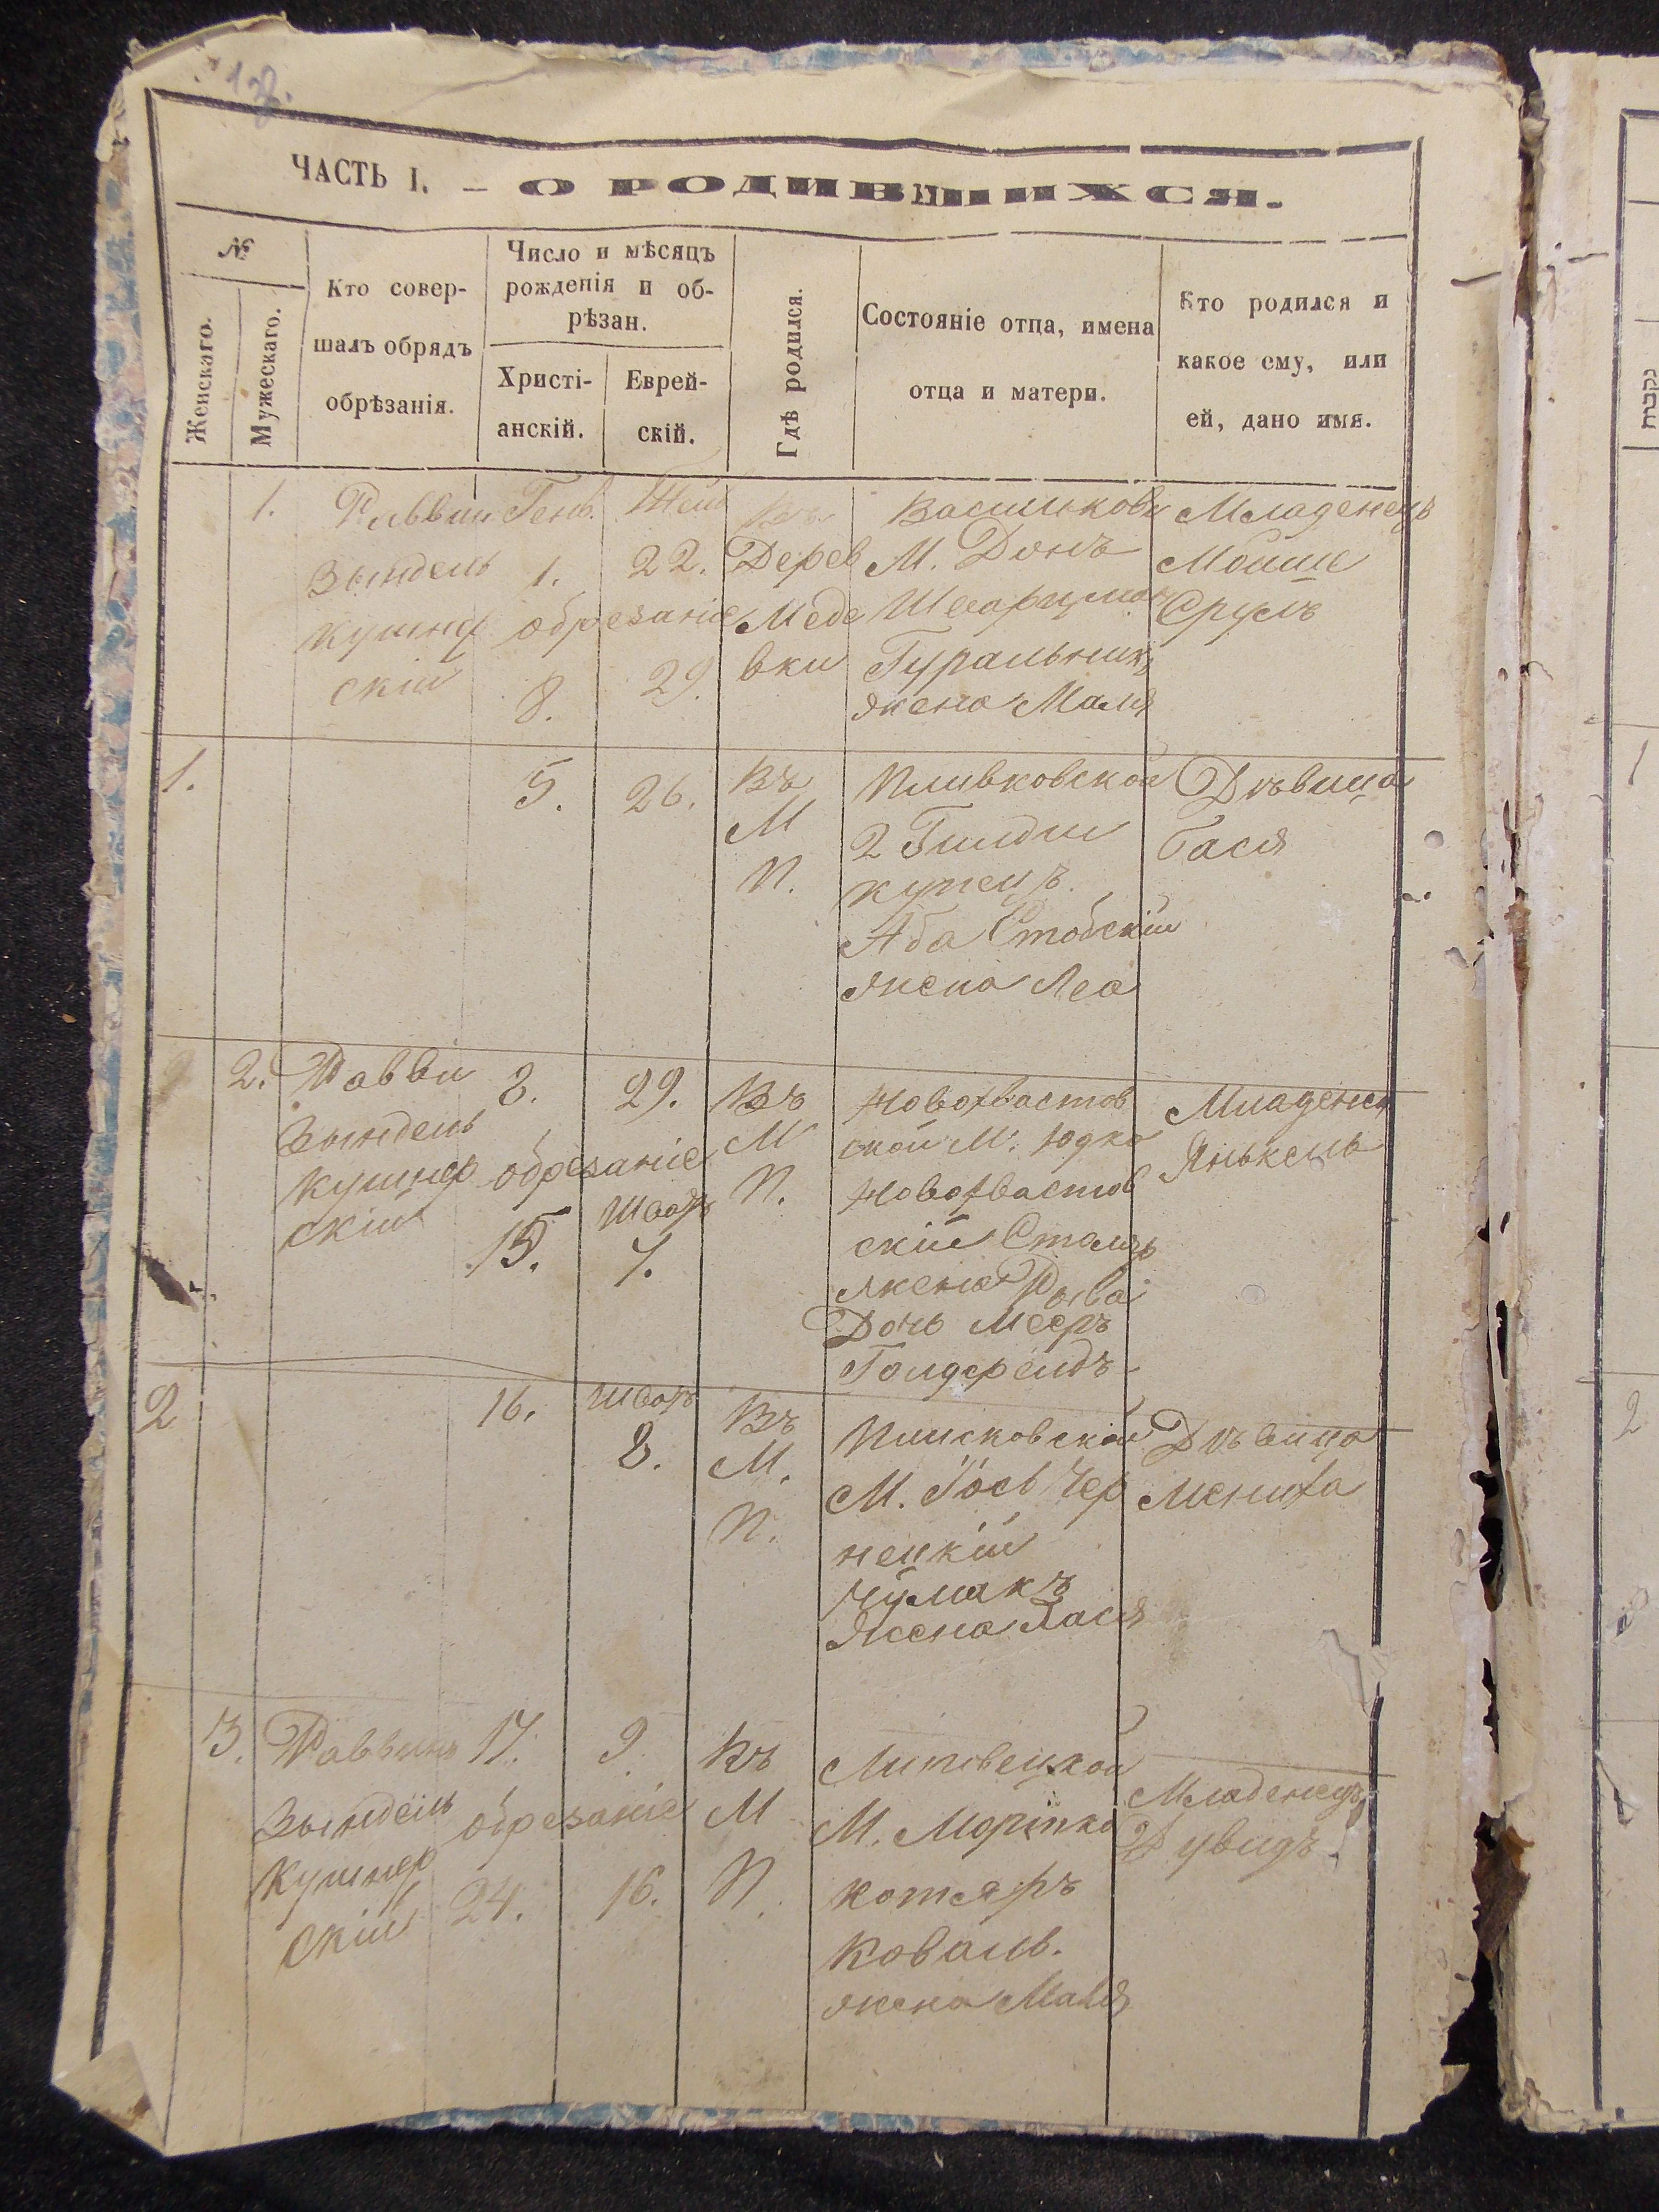 138.
ЧАСТЬ I. – О РОДИВШИХСЯ.
№
Женскаго.
Мужескаго.
Кто совер-
шалъ обрядъ
обрѣзанія.
Число и мѣсяцъ
рожденія и об-
рѣзан.
Христі-
анскій.
Еврей-
скій.
Гдѣ родился.
Состояніе отца, имена
отца и матери.
Кто родился и
какое ему, или
ей, дано имя.
1.
Раввин
Зындель
Кушнер
скій
Генв.
1.
обрезаніе
8.
22.
29.
Въ
Дерев
Меде
вки
Васильковс
М. Донъ
Гуральникъ
жена Маля
Младенецъ
Мойше
Сруль
1.
5.
26.
Въ
М
П.
2 Гилдіи
купецъ.
Аба Стобскій
жена Леа
Дѣвица
Бася
2.
Равви
Зындель
Кушнер
скій
8.
обрезаніе
15.
29.
Шват
7.
Въ
М
П.
Новофастов
ской М. Юдко
Новофастов
скій Столяр
жена
Дочь Меера
Младенец
Янькель
2
16.
Шват
8.
Въ
М.
П.
М. Іось Чер
нецкій
Чумакъ
Жена Хася
Дѣвица
Мениха
3.
Раввинъ
Зындель
Кушнер
скій
17.
обрезаніе
24.
9
16.
Въ
М
П.
Липовецкой
М. Мортко
Котляръ
Коваль.
жена Маля
Младенецъ
Дувидъ
1
2